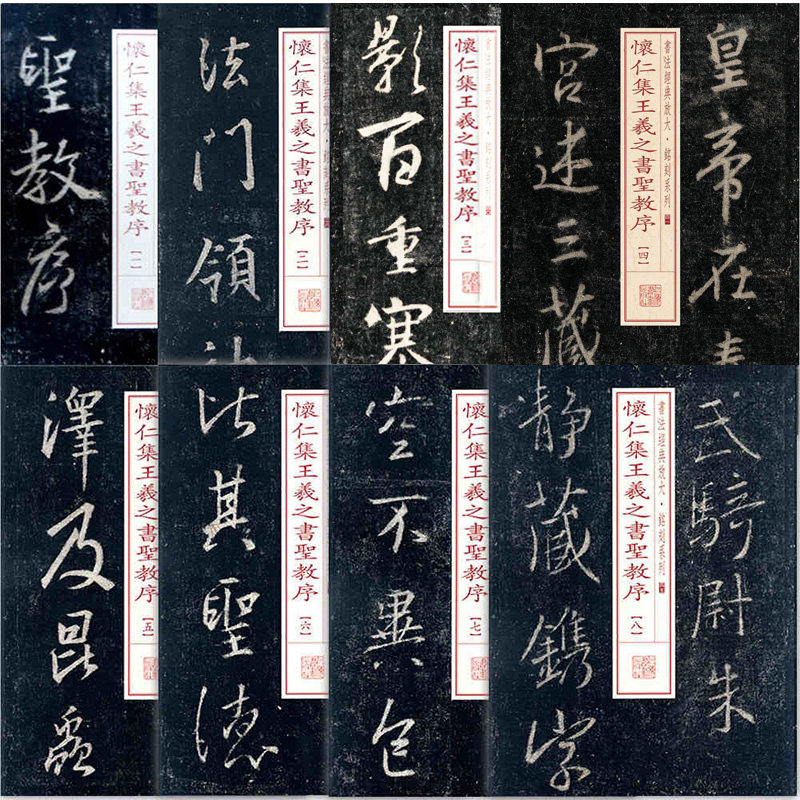 聖教序
懷仁集王羲之書聖教序
【一】
法門領
書法經典放大·銘刻系列
懷仁集王羲之書聖教序
【二】
影百重寒
書法經典放大·銘刻系列
懷仁集王羲之書聖教序
【三】
皇帝在春
書法經典放大·銘刻系列
懷仁集王羲之書聖教序
【四】
宮述三藏
澤及昆蟲
懷仁集王羲之書聖教序
【五】
比其聖德
懷仁集王羲之書聖教序
【六】
空不異色
懷仁集王羲之書聖教序
【七】
武騎尉朱
書法經典放大·銘刻系列
懷仁集王羲之書聖教序
【八】
靜藏鐫字